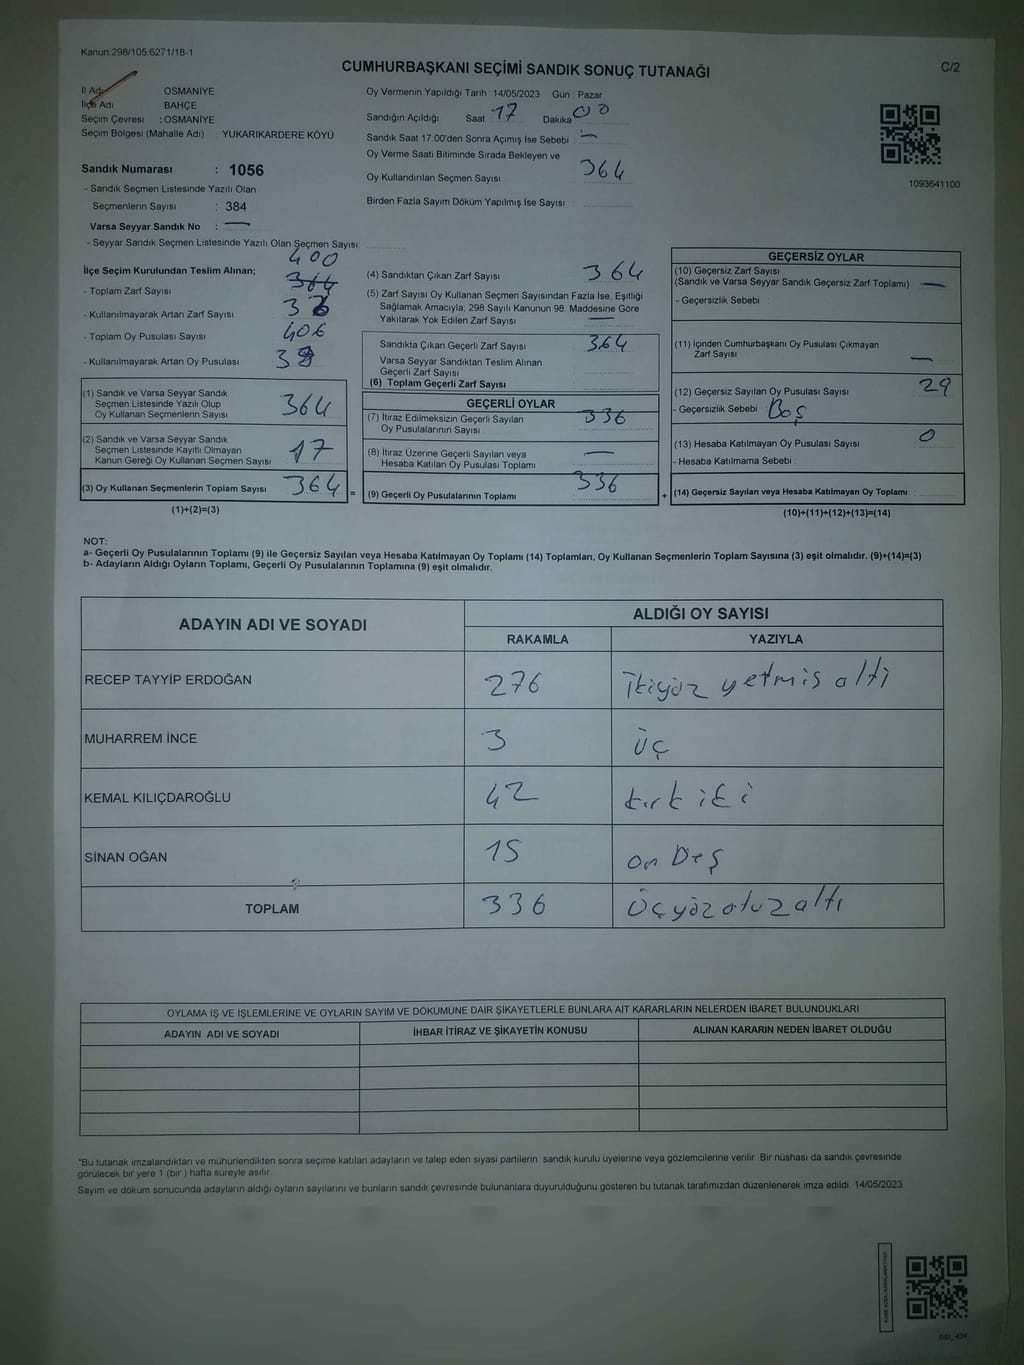 Kanun:298/105.6271/18-1
CUMHURBAŞKANI SEÇİMİ SANDIK SONUÇ TUTANAĞI
C/2
İl Adı OSMANİYE
İlçe Adı BAHÇE
Seçim Çevresi : OSMANİYE
Seçim Bölgesi (Mahalle Adı) YUKARIKARDERE KÖYÜ
Sandık Numarası : 1056
- Sandık Seçmen Listesinde Yazılı Olan
Seçmenlerin Sayısı : 384
Varsa Seyyar Sandık No : —
- Seyyar Sandık Seçmen Listesinde Yazılı Olan Seçmen Sayısı:
Oy Vermenin Yapıldığı Tarih 14/05/2023 Gün : Pazar
Sandığın Açıldığı Saat 17 Dakika 00
Sandık Saat 17.00'den Sonra Açımış İse Sebebi : —
Oy Verme Saati Bitiminde Sırada Bekleyen ve
Oy Kullandırılan Seçmen Sayısı 364
Birden Fazla Sayım Döküm Yapılmış İse Sayısı :
1093641100
İlçe Seçim Kurulundan Teslim Alınan;
400
- Toplam Zarf Sayısı 364
- Kullanılmayarak Artan Zarf Sayısı
- Toplam Oy Pusulası Sayısı 406
- Kullanılmayarak Artan Oy Pusulası
(1) Sandık ve Varsa Seyyar Sandık
Seçmen Listesinde Yazılı Olup
Oy Kullanan Seçmenlerin Sayısı 364
(2) Sandık ve Varsa Seyyar Sandık
Seçmen Listesinde Kayıtlı Olmayan
Kanun Gereği Oy Kullanan Seçmen Sayısı 17
(3) Oy Kullanan Seçmenlerin Toplam Sayısı 364 =
(1)+(2)=(3)
(4) Sandıktan Çıkan Zarf Sayısı 364
(5) Zarf Sayısı Oy Kullanan Seçmen Sayısından Fazla İse, Eşitliği
Sağlamak Amacıyla; 298 Sayılı Kanunun 98. Maddesine Göre
Yakılarak Yok Edilen Zarf Sayısı —
Sandıkta Çıkan Geçerli Zarf Sayısı 364
Varsa Seyyar Sandıktan Teslim Alınan
Geçerli Zarf Sayısı
(6) Toplam Geçerli Zarf Sayısı
GEÇERLİ OYLAR
(7) İtiraz Edilmeksizin Geçerli Sayılan
Oy Pusulalarının Sayısı 336
(8) İtiraz Üzerine Geçerli Sayılan veya
Hesaba Katılan Oy Pusulası Toplamı —
(9) Geçerli Oy Pusulalarının Toplamı 336 +
GEÇERSİZ OYLAR
(10) Geçersiz Zarf Sayısı
(Sandık ve Varsa Seyyar Sandık Geçersiz Zarf Toplamı) —
- Geçersizlik Sebebi :
(11) İçinden Cumhurbaşkanı Oy Pusulası Çıkmayan
Zarf Sayısı —
(12) Geçersiz Sayılan Oy Pusulası Sayısı 29
- Geçersizlik Sebebi : Boş
(13) Hesaba Katılmayan Oy Pusulası Sayısı 0
- Hesaba Katılmama Sebebi :
(14) Geçersiz Sayılan veya Hesaba Katılmayan Oy Toplamı :
(10)+(11)+(12)+(13)=(14)
NOT:
a- Geçerli Oy Pusulalarının Toplamı (9) ile Geçersiz Sayılan veya Hesaba Katılmayan Oy Toplamı (14) Toplamları, Oy Kullanan Seçmenlerin Toplam Sayısına (3) eşit olmalıdır. (9)+(14)=(3)
b- Adayların Aldığı Oyların Toplamı, Geçerli Oy Pusulalarının Toplamına (9) eşit olmalıdır.
ADAYIN ADI VE SOYADI
ALDIĞI OY SAYISI
RAKAMLA YAZIYLA
RECEP TAYYİP ERDOĞAN 276 ikiyüz yetmiş altı
MUHARREM İNCE 3 üç
KEMAL KILIÇDAROĞLU 42 kırk iki
SİNAN OĞAN 15 on Beş
TOPLAM 336 Üçyüzotuzaltı
OYLAMA İŞ VE İŞLEMLERİNE VE OYLARIN SAYIM VE DÖKÜMÜNE DAİR ŞİKAYETLERLE BUNLARA AİT KARARLARIN NELERDEN İBARET BULUNDUKLARI
ADAYIN ADI VE SOYADI İHBAR İTİRAZ VE ŞİKAYETİN KONUSU ALINAN KARARIN NEDEN İBARET OLDUĞU
*Bu tutanak imzalandıktan ve mühürlendikten sonra seçime katılan adayların ve talep eden siyasi partilerin sandık kurulu üyelerine veya gözlemcilerine verilir. Bir nüshası da sandık çevresinde
görülecek bir yere 1 (bir) hafta süreyle asılır.
Sayım ve döküm sonucunda adayların aldığı oyların sayılarını ve bunların sandık çevresinde bulunanlara duyurulduğunu gösteren bu tutanak tarafımızdan düzenlenerek imza edildi. 14/05/2023